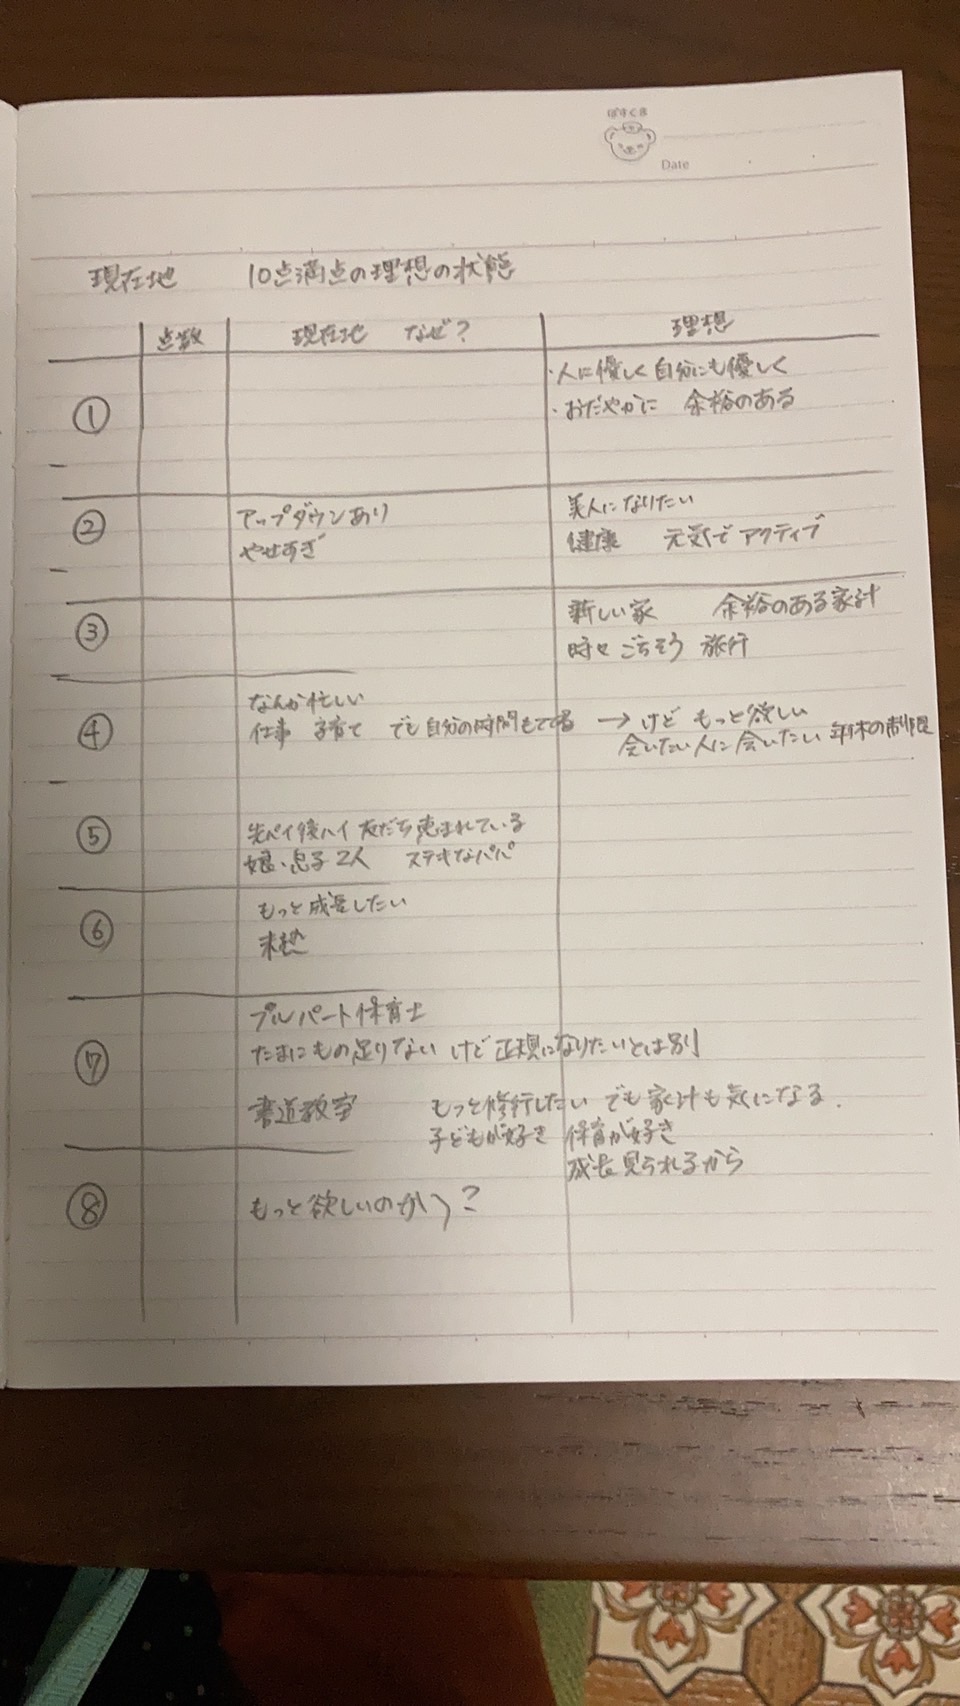 ぽすくま
Date
現在地 10点満点の理想の状態
点数 現在地 なぜ? 理想
① ・人に優しく自分にも優しく
・おだやかに 余裕のある
② アップダウンあり 美人になりたい
やせすぎ 健康 元気でアクティブ
③ 新しい家 余裕のある家計
時々ごちそう 旅行
④ なんか忙しい
仕事 子育て でも自分の時間もてる → けど もっと欲しい
会いたい人に会いたい 年末の制限
⑤ 先パイ後ハイ 友だち 恵まれている
娘・息子2人 ステキなパパ
⑥ もっと成長したい
未熟
⑦ プルパート保育士
たまにもの足りない けど正規になりたいとは別
書道教室 もっと修行したい でも家計も気になる.
子どもが好き 保育が好き
成長見られるから
⑧ もっと欲しいのかう?